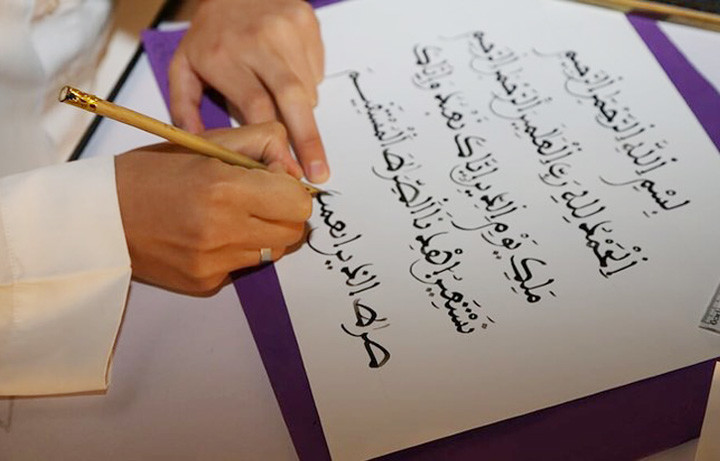 بِسْمِ اللَّهِ الرَّحْمَٰنِ الرَّحِيمِ
اَلْحَمْدُ لِلهِ رَبِّ الْعَٰلَمِينَ الرَّحْمَٰنِ الرَّحِيمِ
مَلِكِ يَوْمِ الدِّينِ إِيَّاكَ نَعْبُدُ وَإِيَّاكَ
نَسْتَعِينُ اهْدِنَا الصِّرَٰطَ الْمُسْتَقِيمَ
صراط الذين انعمت